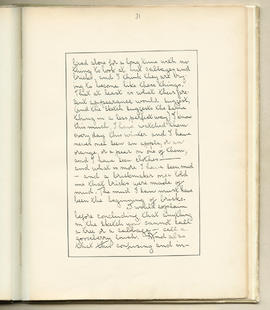 31
lived alone for a long time with no-
thing to look at but cabbages and
bricks, and I think they are try
ing to become like these things.
That at least is what their pre-
sent appearance would suggest,
(and the sketch suggests the same
thing in a less perfect way) I know
this much I have watched them
every day this winter and I have
never met seen an apple, or an
orange or a pear on one of them,
and I have been
and what is more I have seen mud
- and a brickmaker once told
me that bricks were made of
mud. The mud I saw must have
been the beginning of bricks.
I would explain
before concluding that anything
in the sketch you cannot call
a tree or a cabbage - call a
gooseberry bush. And also
that this confusing and un-